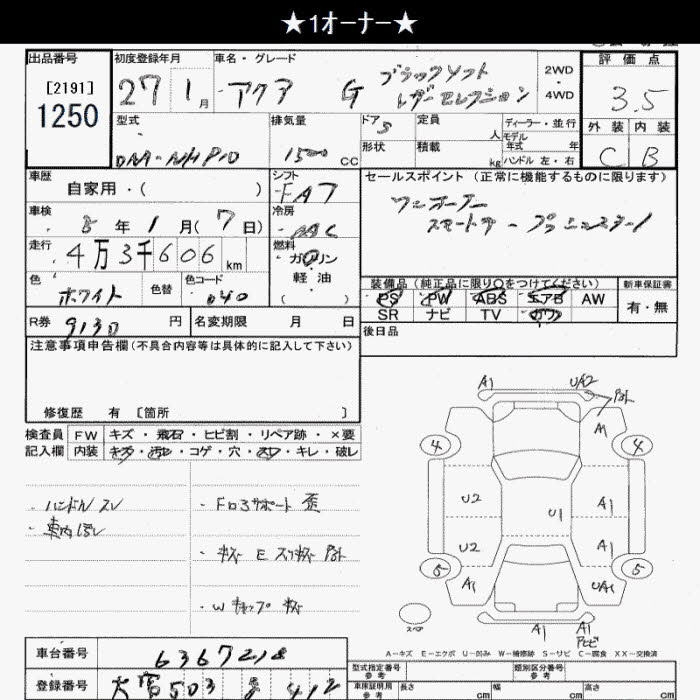 ★1オーナー★
出品番号 初度登録年月 車名・グレード 評価点
[2191]
1250
27 1月 アクア G ブラックソフト
レザーセレクション
2WD
4WD
3.5
型式 排気量 ドア 定員 ディーラー・並行 外装 内装
5 人 モデル年式 年
DAA-NHP10 1500 CC 形状 積載 kg ハンドル 左・右 C B
車歴 シフト セールスポイント(正常に機能するものに限ります)
自家用・( ) FAT ワンオーナー
車検 冷房 スマートキー プッシュスタート
5年1月(7日) AAC
走行 燃料
4万3千606km ガソリン
色 色替 色コード 軽・油
ホワイト 040 ( )
装備品(純正品に限り○をつけてください) 新車保証書
PS PW ABS エアB AW 有・無
SR ナビ TV
R券 9130円 名変期限 月 日 後日品
注意事項申告欄(不具合内容等は具体的に記入して下さい)
修復歴 有 [箇所 ]
検査員 FW キズ・飛石・ヒビ割・リペア跡・×要
記入欄 内装 キズ・汚レ・コゲ・穴・スレ・キレ・破レ
・ハンドルスレ ・Fロアサポート歪
・車内汚レ
・キズ E スリキズ
・Wキャップ キズ
A1 UA2
A1
4 4
U2 U1 A1
U2 A1
5 5
A1 UA1
A1 A1
スペア
A-キズ E-エクボ U-凹み W-補修跡 S-サビ C-腐食 XX-交換済
車台番号 6367218
型式指定番号 参考 類別区分番号 参考
登録番号 大宮503 412
車庫証明用 参考 長さ cm 幅 cm 高さ cm